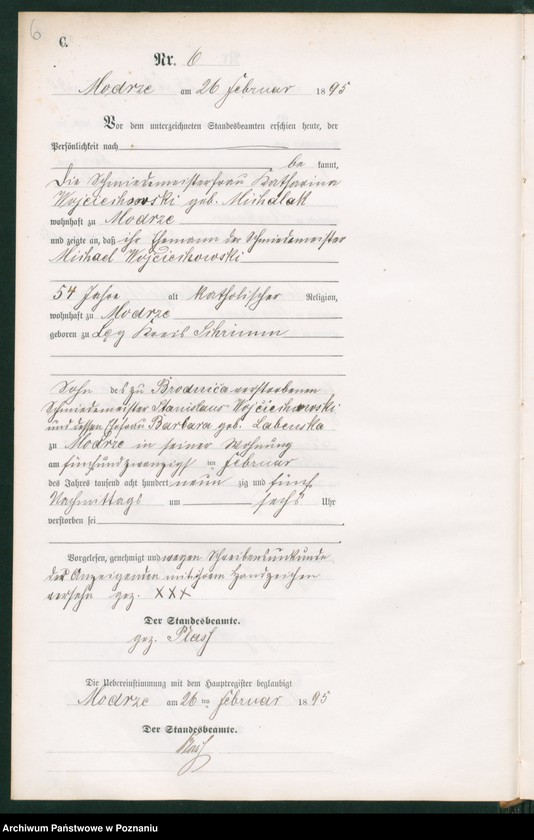 6
C.
Nr. 6
Modrze am 26 Februar 1895
Vor dem unterzeichneten Standesbeamten erschien heute, der
Persönlichkeit nach
be kannt,
Die Schmiedemeisterfrau Katharina
Wojciechowski geb. Michalak
wohnhaft zu Modrze
und zeigte an, daß ihr Ehemann der Schmiedemeister
Michael Wojciechowski
54 Jahre alt katholischer Religion,
wohnhaft zu Modrze
geboren zu Lęg Kreis Schrimm
Sohn des zu Brodnica verstorbenen
Schmiedemeister Stanislaus Wojciechowski
und dessen Ehefrau Barbara geb. Labenska
zu Modrze in seiner Wohnung
am fünfundzwanzigsten Februar
des Jahres tausend acht hundert neun zig und fünf
Nachmittags um sechs Uhr
verstorben sei
Vorgelesen, genehmigt und wegen Schreibensunkunde
der Anzeigenden mit ihrem Handzeichen
versehn gez. XXX
Der Standesbeamte.
gez.
Die Uebereinstimmung mit dem Hauptregister beglaubigt
Modrze am 26 ten Februar 1895
Der Standesbeamte.
Archiwum Państwowe w Poznaniu